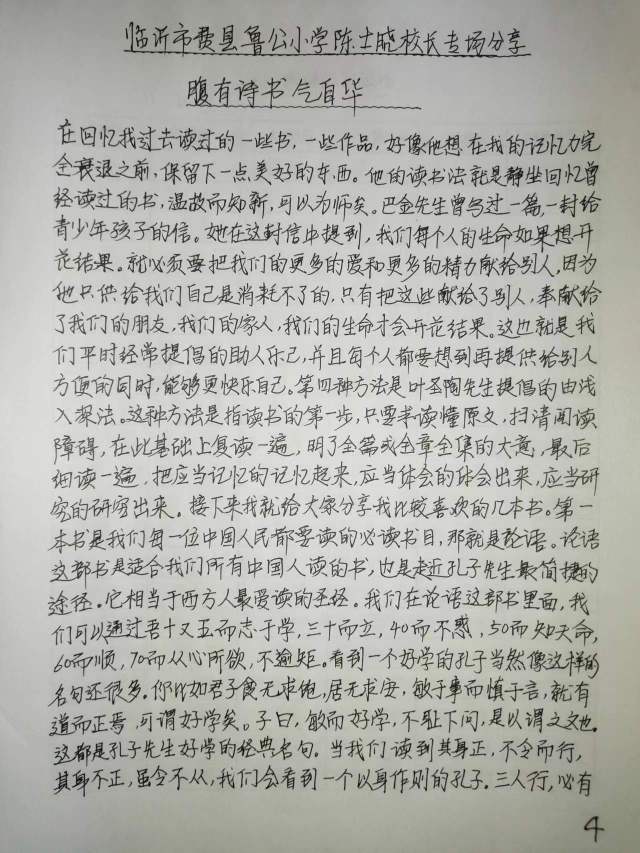 临沂市费县鲁公小学陈士晓校长专场分享
腹有诗书气自华
在回忆我过去读过的一些书,一些作品,好像他想在我的记忆力完
全衰退之前,保留下一点美好的东西。他的读书法就是静坐回忆曾
经读过的书,温故而知新,可以为师矣。巴金先生曾写过一篇,一封给
青少年孩子的信。她在这封信中提到,我们每个人的生命如果想开
花结果。就必须要把我们的更多的爱和更多的精力献给别人,因为
他只供给我们自己是消耗不了的,只有把这些献给了别人,奉献给
了我们的朋友,我们的家人,我们的生命才会开花结果。这也就是我
们平时经常提倡的助人乐己,并且每个人都要想到再提供给别人
方便的同时,能够更快乐自己。第四种方法是叶圣陶先生提倡的由浅
入深法。这种方法是指读书的第一步,只要半读懂原文,扫清阅读
障碍,在此基础上复读一遍,明了全篇或全章全集的大意,最后
细读一遍,把应当记忆的记忆起来,应当体会的体会出来,应当研
究的研究出来。接下来我就给大家分享我比较喜欢的几本书。第一
本书是我们每一位中国人民都要读的必读书目,那就是论语。论语
这部书是适合我们所有中国人读的书,也是走近孔子先生最简捷的
途径。它相当于西方人最爱读的圣经。我们在论语这部书里面,我
们可以通过吾十又五而志于学,三十而立,40而不惑,50而知天命,
60而顺,70而从心所欲,不逾矩。看到一个好学的孔子当然像这样的
名句还很多。你比如君子食无求饱,居无求安,敏于事而慎于言,就有
道而正焉,可谓好学矣。子曰,敏而好学,不耻下问,是以谓之文也。
这都是孔子先生好学的经典名句。当我们读到其身正,不令而行,
其身不正,虽令不从,我们会看到一个以身作则的孔子。三人行,必有
4